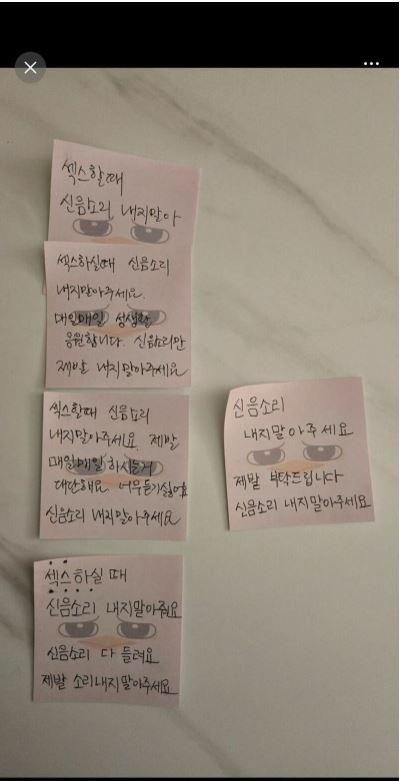 섹스할때
신음소리 내지말아
섹스하실때 신음소리
내지말아주세요.
매일매일 성생활
응원합니다. 신음소리만
제발 내지말아주세요
섹스할때 신음소리
내지말아주세요. 제발
매일매일 하시는거
대단해요 너무듣기싫어요
신음소리 내지말아주세요
신음소리
내지말아주세요
제발 부탁드립니다
신음소리 내지말아주세요
섹스하실 때
신음소리 내지말아줘요
신음소리 다 들려요
제발 소리내지말아주세요